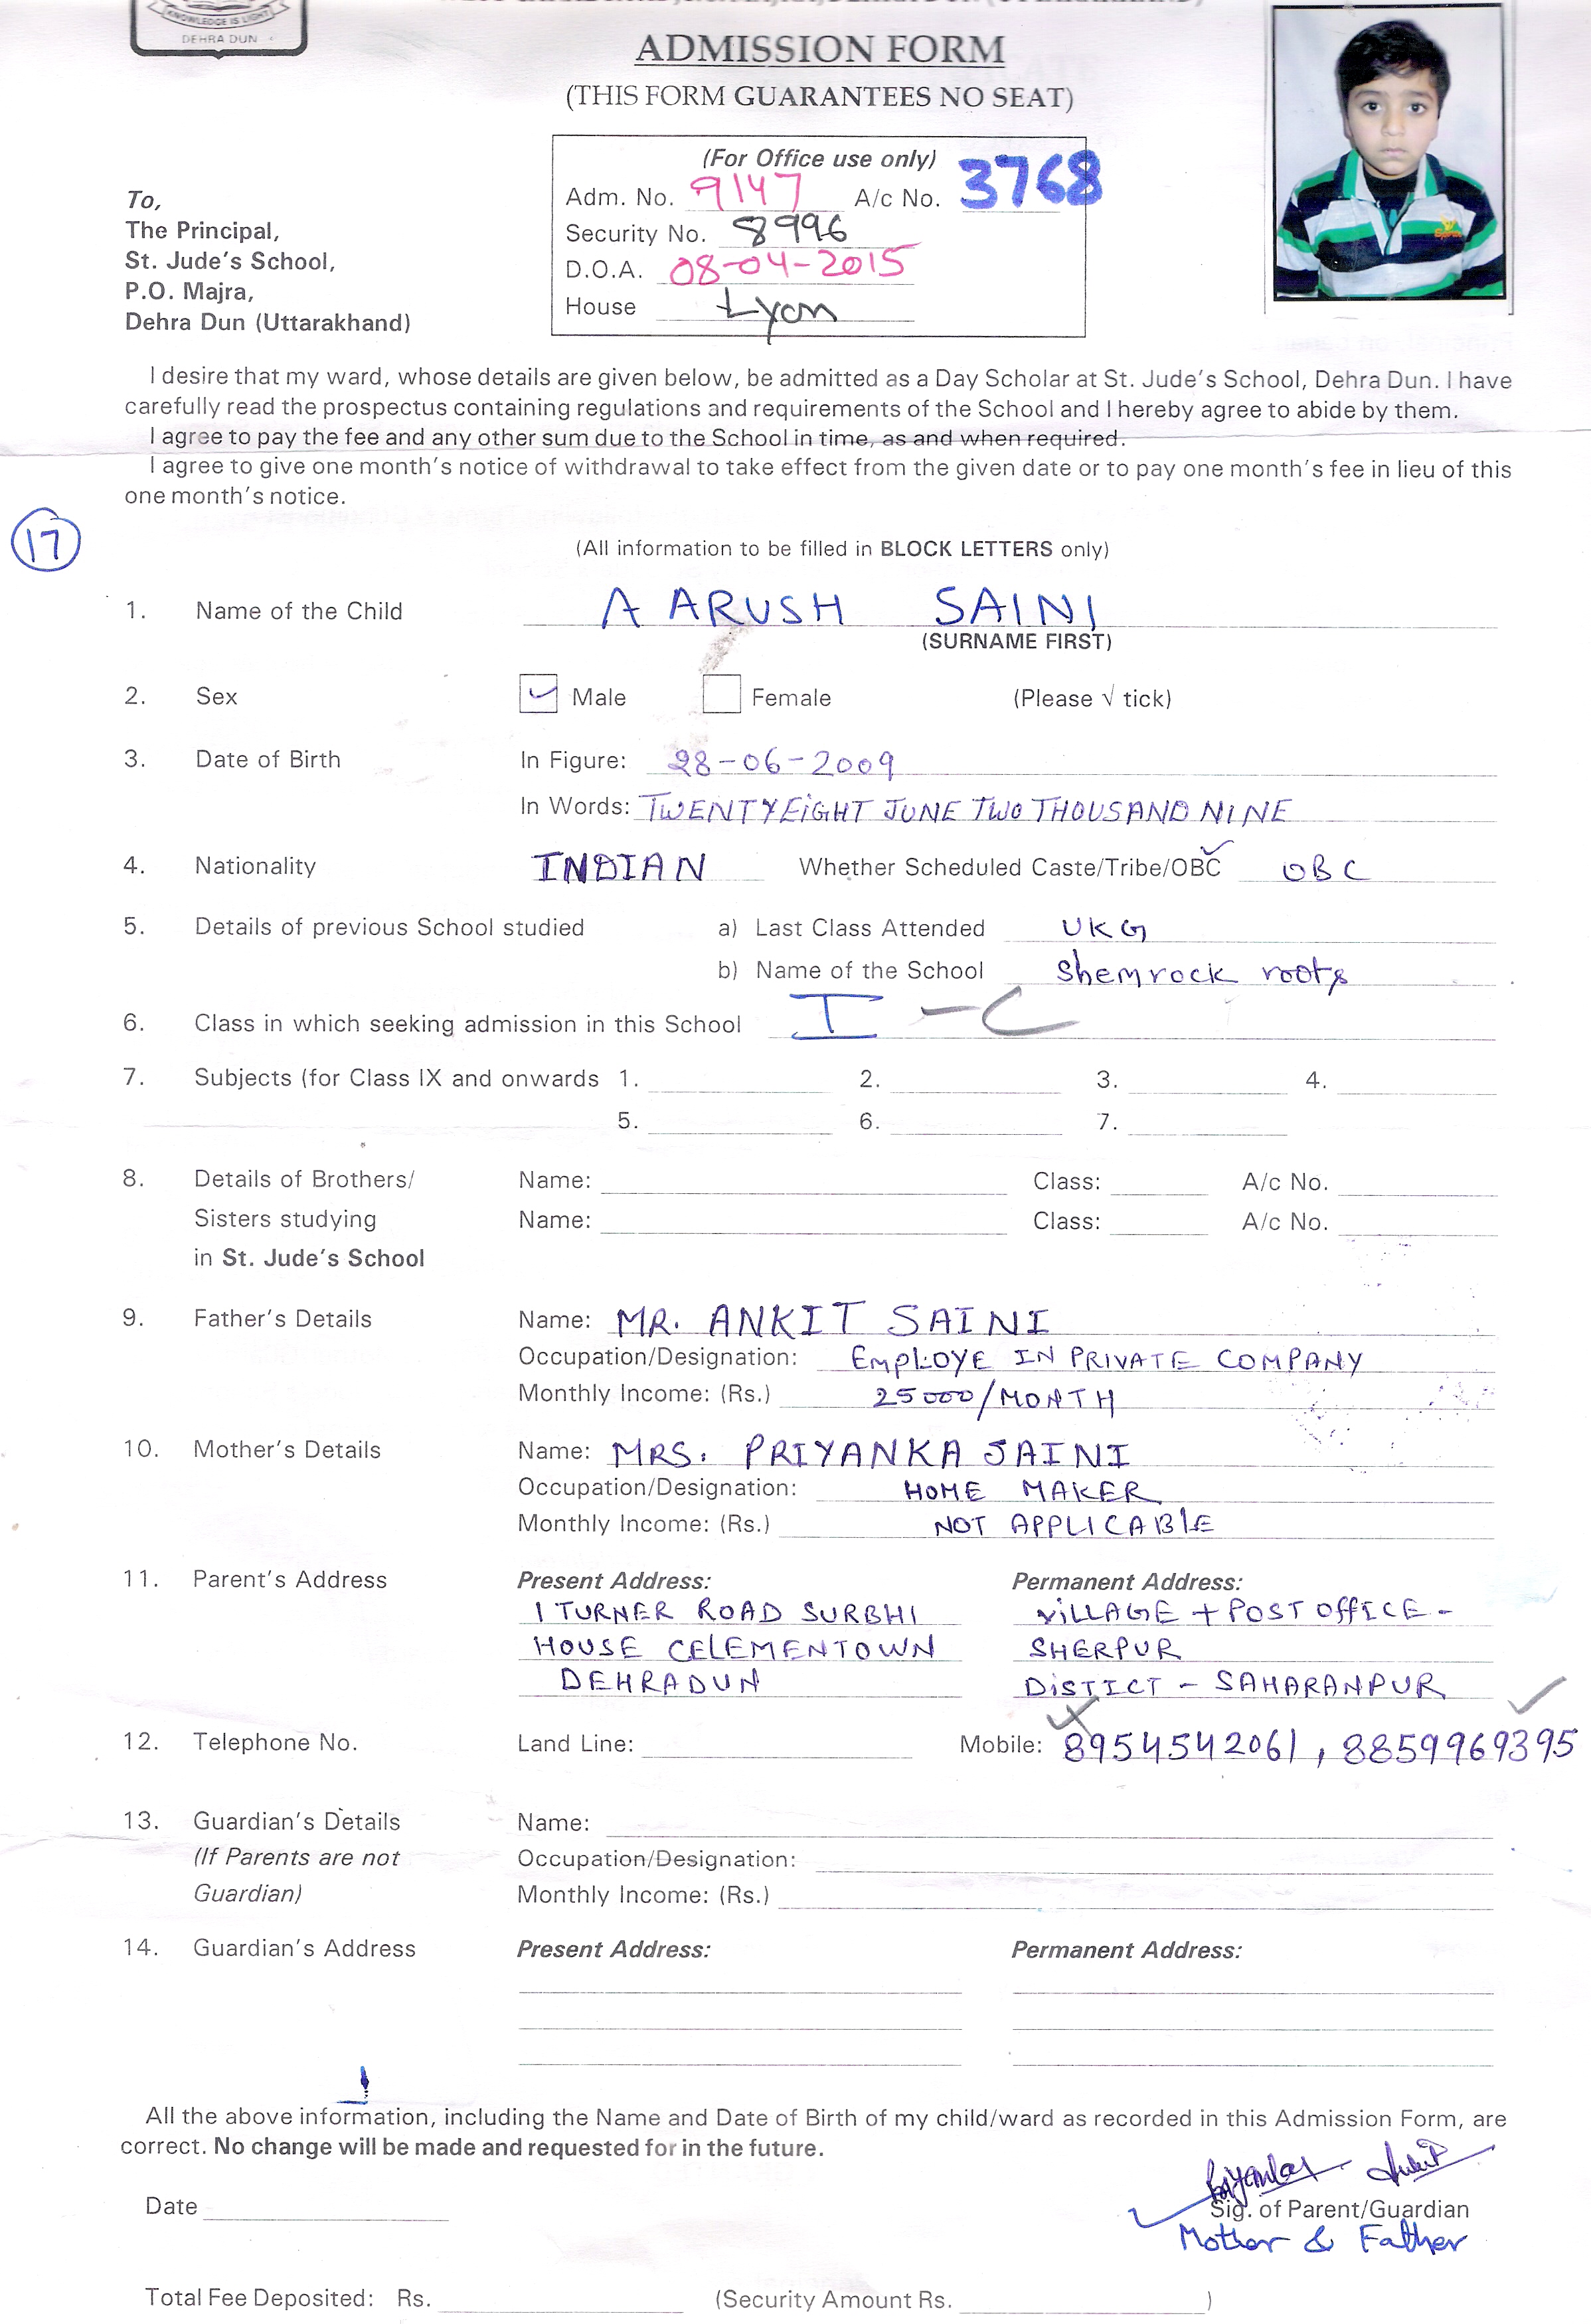 KNOWLEDGE IS LIGHT
DEHRA DUN
ADMISSION FORM
(THIS FORM GUARANTEES NO SEAT)
(For Office use only)
Adm. No. 9147 A/c No. 3768
Security No. 8996
D.O.A. 08-04-2015
House Lyon
To,
The Principal,
St. Jude's School,
P.O. Majra,
Dehra Dun (Uttarakhand)
I desire that my ward, whose details are given below, be admitted as a Day Scholar at St. Jude's School, Dehra Dun. I have
carefully read the prospectus containing regulations and requirements of the School and I hereby agree to abide by them.
I agree to pay the fee and any other sum due to the School in time, as and when required.
I agree to give one month's notice of withdrawal to take effect from the given date or to pay one month's fee in lieu of this
one month's notice.
17
(All information to be filled in BLOCK LETTERS only)
1. Name of the Child AARUSH SAINI
(SURNAME FIRST)
2. Sex Male Female (Please √ tick)
3. Date of Birth In Figure: 28-06-2009
In Words: TWENTYEIGHT JUNE TWO THOUSAND NINE
4. Nationality INDIAN Whether Scheduled Caste/Tribe/OBC OBC
5. Details of previous School studied a) Last Class Attended UKG
b) Name of the School Shemrock roots
6. Class in which seeking admission in this School I - C
7. Subjects (for Class IX and onwards 1. 2. 3. 4.
5. 6. 7.
8. Details of Brothers/ Name: Class: A/c No.
Sisters studying Name: Class: A/c No.
in St. Jude's School
9. Father's Details Name: MR. ANKIT SAINI
Occupation/Designation: EMPLOYE IN PRIVATE COMPANY
Monthly Income: (Rs.) 25000/MONTH
10. Mother's Details Name: MRS. PRIYANKA SAINI
Occupation/Designation: HOME MAKER
Monthly Income: (Rs.) NOT APPLICABlE
11. Parent's Address Present Address: Permanent Address:
1 TURNER ROAD SURBHI VILLAGE + POST OffICE -
HOUSE CELEMENTOWN SHERPUR
DEHRADUN DISTICT - SAHARANPUR
12. Telephone No. Land Line: Mobile: 8954542061, 8859969395
13. Guardian's Details Name:
(If Parents are not Occupation/Designation:
Guardian) Monthly Income: (Rs.)
14. Guardian's Address Present Address: Permanent Address:
All the above information, including the Name and Date of Birth of my child/ward as recorded in this Admission Form, are
correct. No change will be made and requested for in the future.
Priyanka Ankit
Date Sig. of Parent/Guardian
Mother & Father
Total Fee Deposited: Rs. (Security Amount Rs. )